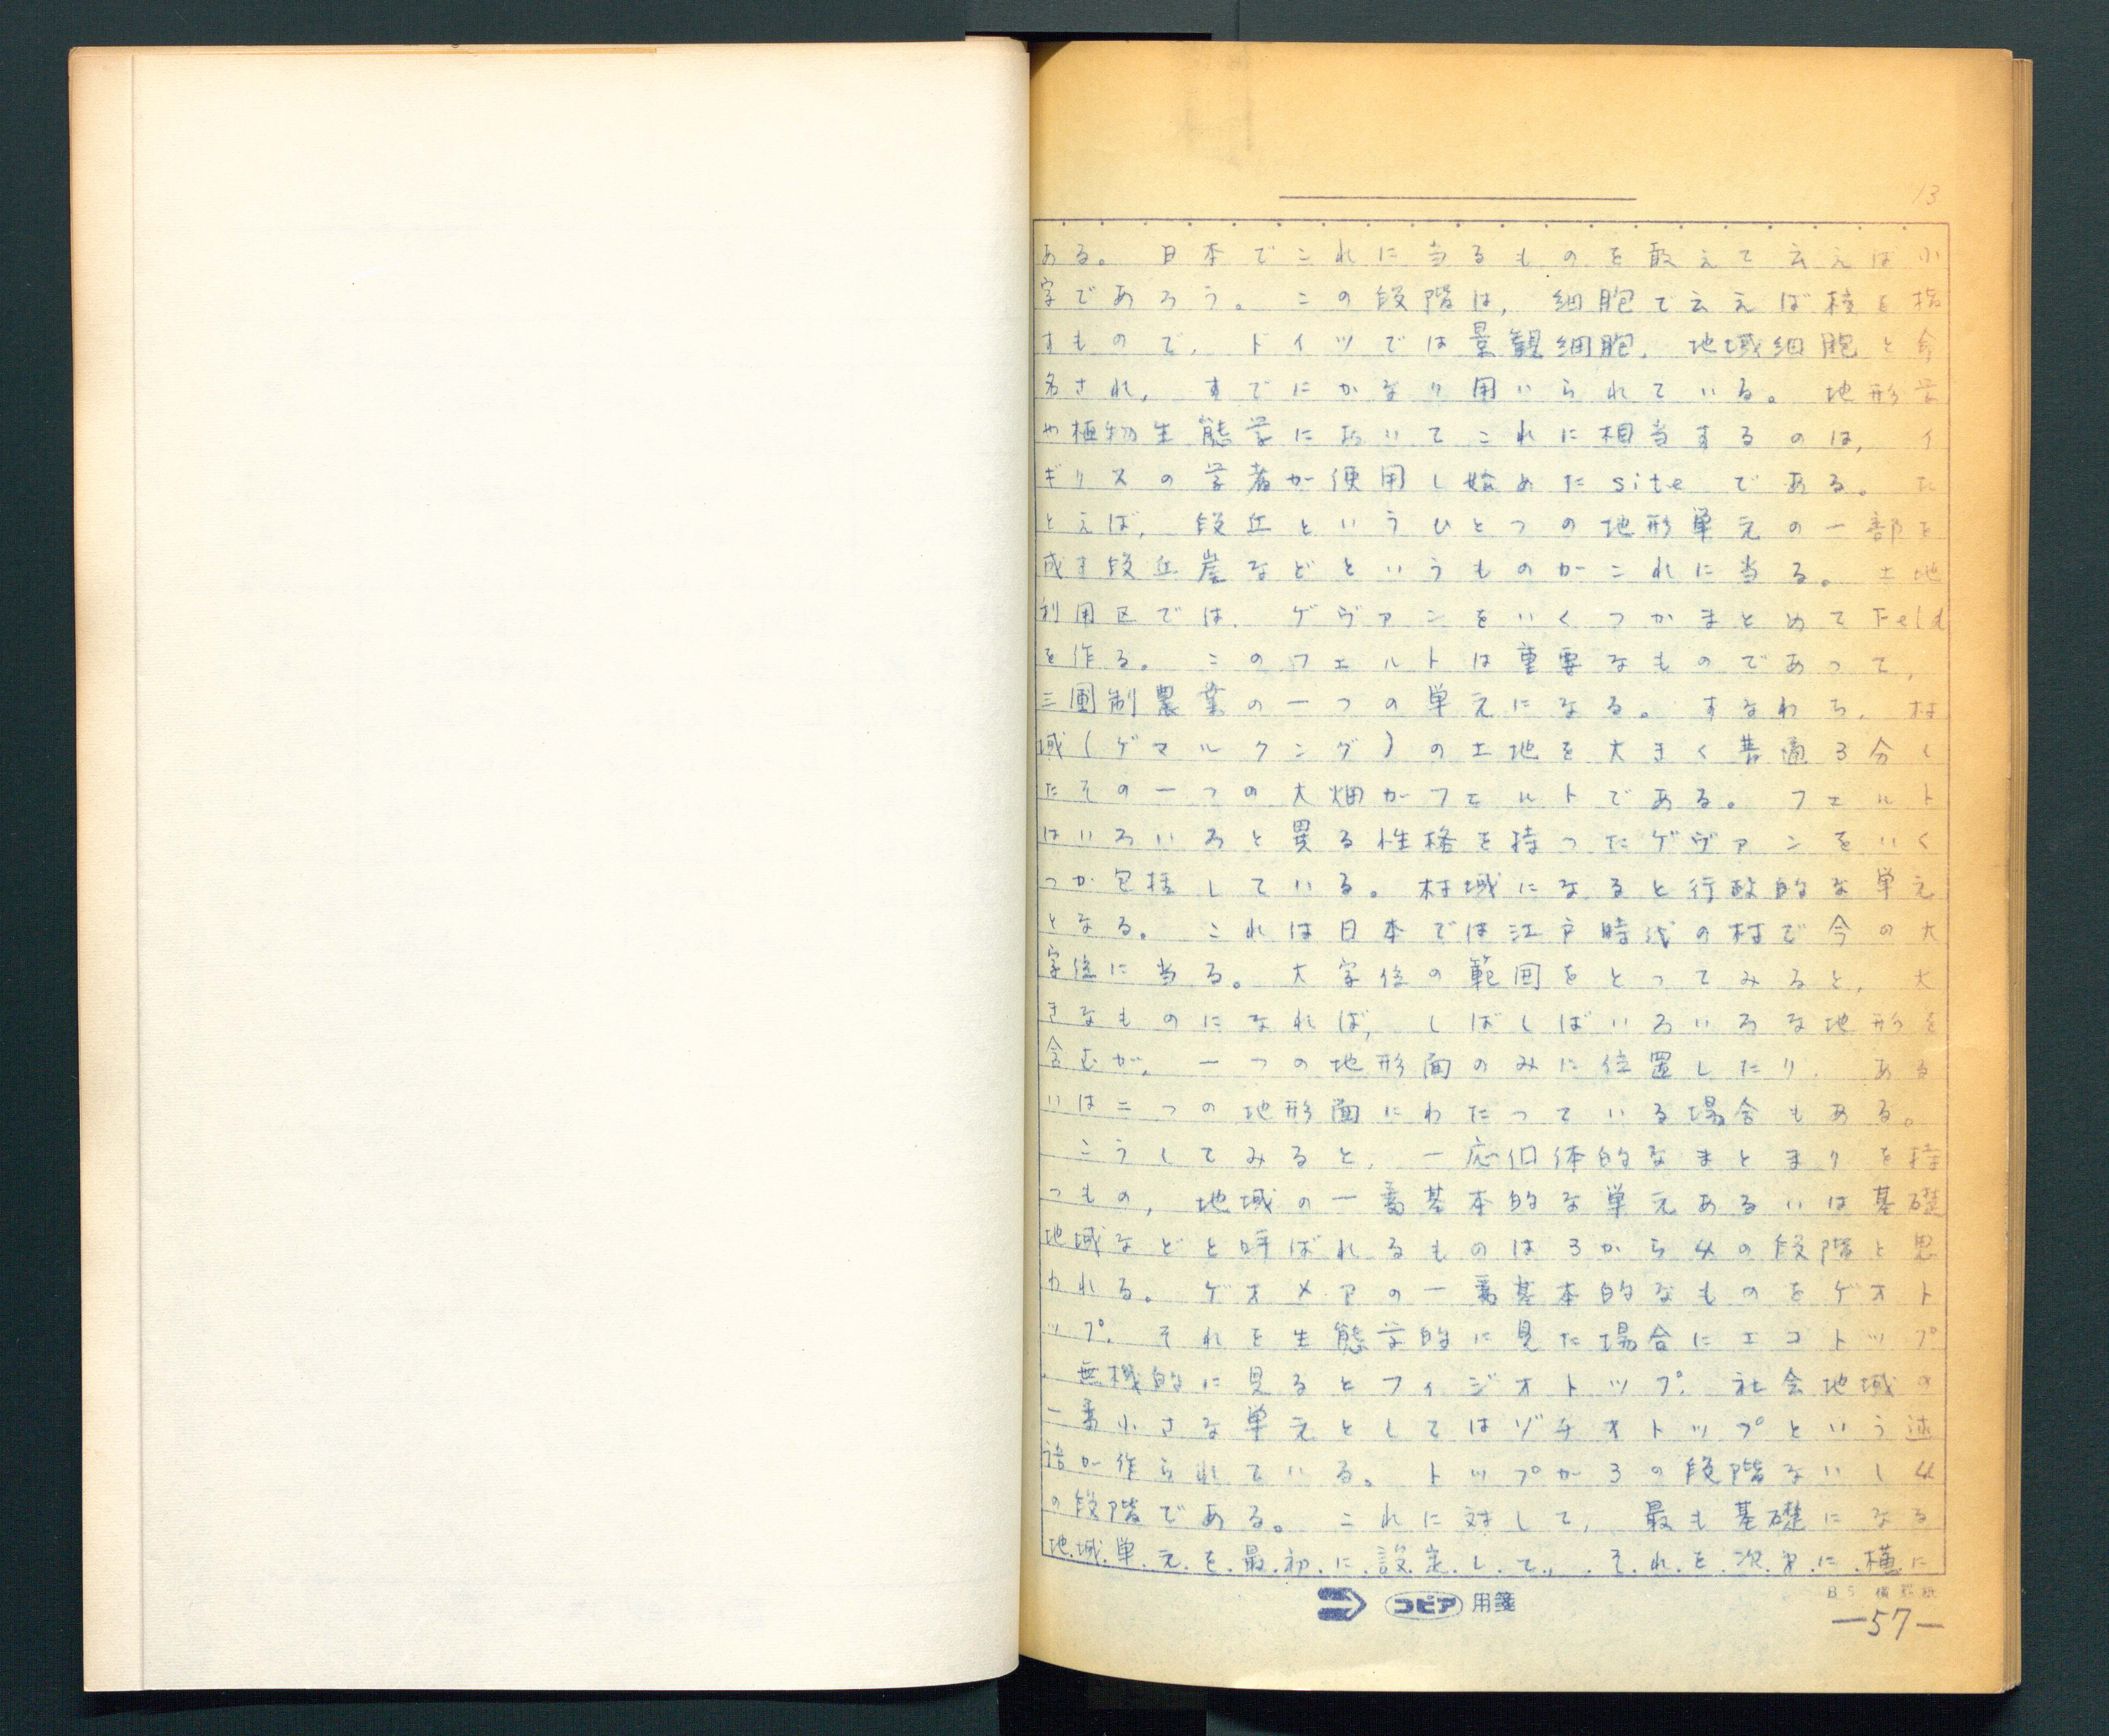 13
ある。 日本でこれに当るものを敢えて云えば小
字であろう。 この段階は, 細胞で云えば核を指
すもので, ドイツでは景観細胞, 地域細胞と命
名され, すでにかなり用いられている。 地形学
や植物生態学においてこれに相当するのは, イ
ギリスの学者が使用し始めたsiteである。 た
とえば, 段丘というひとつの地形単元の一部を
成す段丘崖などというものがこれに当る。 土地
利用区では, ゲヴァンをいくつかまとめてFeld
を作る。 このフェルトは重要なものであって,
三圃制農業の一つの単元になる。 すなわち, 村
域(ゲマルクング)の土地を大きく普通3分し
たその一つの大畑がフェルトである。 フェルト
はいろいろと異る性格を持ったゲヴァンをいく
つか包括している。村域になると行政的な単元
となる。 これは日本では江戸時代の村で今の大
字位に当る。 大字位の範囲をとってみると, 大
きなものになれば, しばしばいろいろな地形を
含むが, 一つの地形面のみに位置したり, ある
いは二つの地形面にわたっている場合もある。
こうしてみると, 一応個体的なまとまりを持
つもの, 地域の一番基本的な単元あるいは基礎
地域などと呼ばれるものは3から4の段階と思
われる。 ゲオメアの一番基本的なものをゲオト
ップ, それを生態学的に見た場合にエコトップ
, 無機的に見るとフィジオトップ, 社会地域の
一番小さな単元としてはゾチオトップという述
語が作られている。 トップが3の段階ないし4
の段階である。 これに対して, 最も基礎になる
地域単元を最初に設定して, それを次才に横に
コピア 用箋
B5 横罫紙
—57—